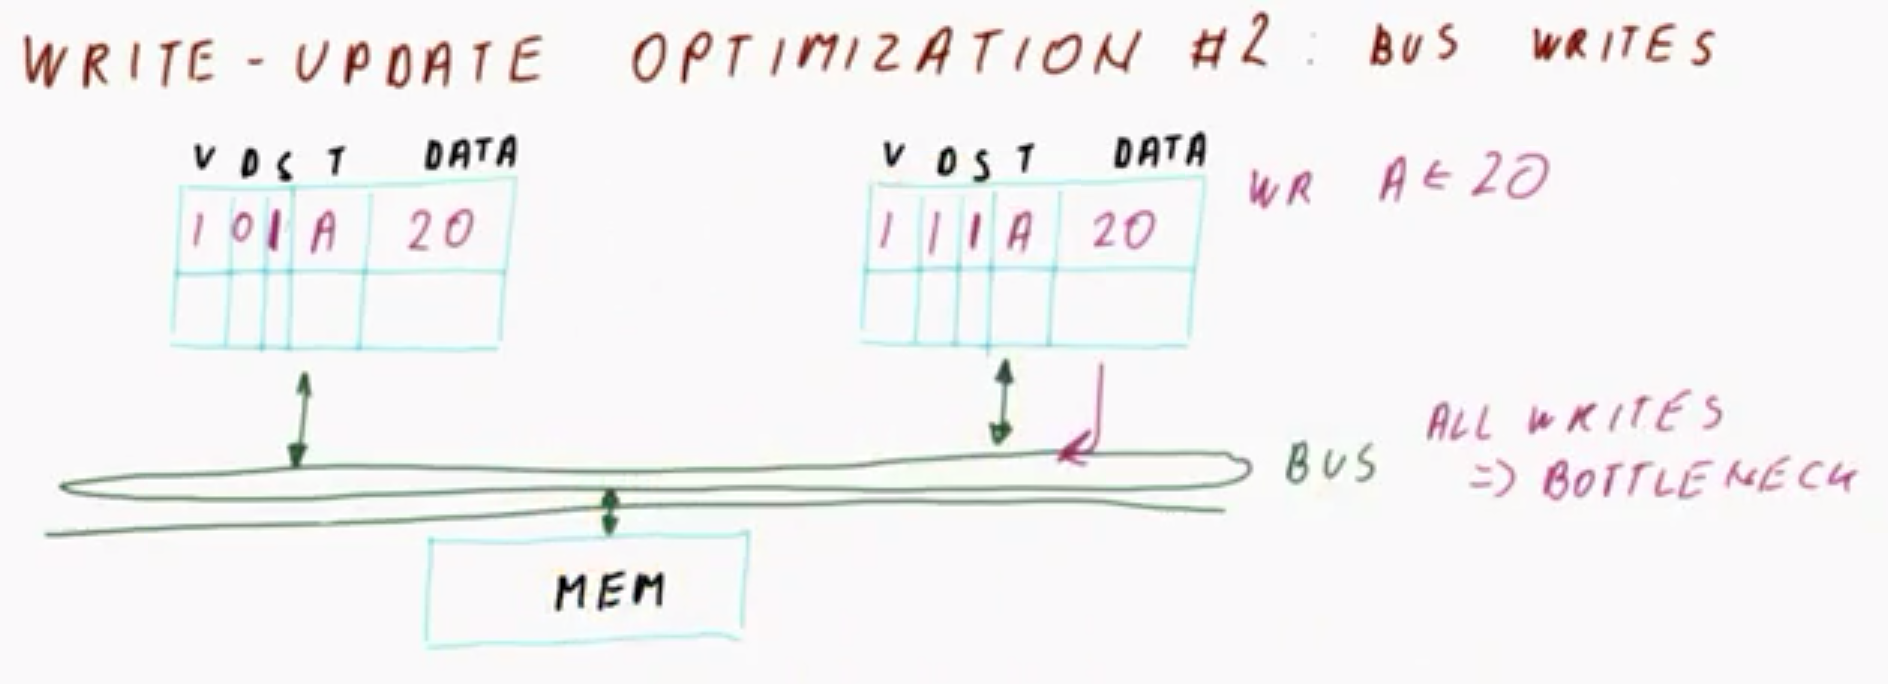 WRITE-UPDATE OPTIMIZATION #2: BUS WRITES
V D S T DATA
1 0 1 A 20
V D S T DATA
1 1 1 A 20
WR A ← 20
BUS
ALL WRITES
=> BOTTLENECK
MEM